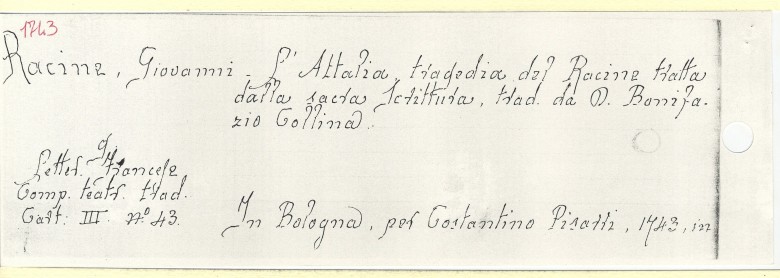 1743
Racine, Giovanni. L'Attalia, tragedia del Racine tratta
dalla sacra Scrittura, trad. da D. Bonifa-
zio Collina.
Letter. francese
Comp. teatr. trad.
Cart: III. nº 43.
In Bologna, per Costantino Pisarri, 1743, in